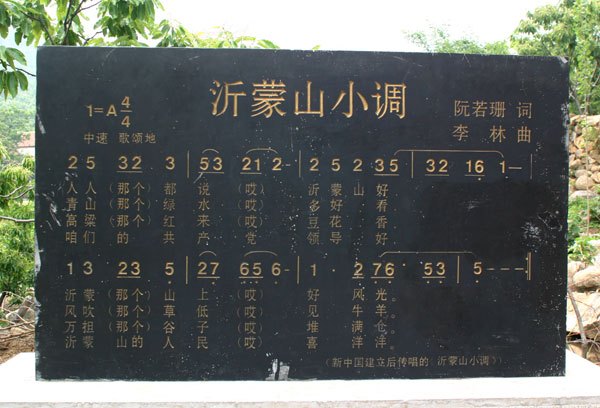 沂蒙山小调
1=A 4/4
阮若珊 词
中速 歌颂地
李林曲
2 5 32 3 | 53 21 2- | 2 5 2 35 | 32 16 1— |
人人(那个)都说(哎)沂蒙山好
青山(那个)绿水(哎)多好看
高粱(那个)红来(哎)豆花香
咱们的共产党(哎)领导好
1 3 23 5 | 27 65 6- | 1· 2 76 53 | 5 - - - |
沂蒙(那个)山上(哎)好风光。
风吹(那个)草低(哎)见牛羊。
万担(那个)谷子(哎)堆满仓。
沂蒙山的人民(哎)喜洋洋。
(新中国建立后传唱的《沂蒙山小调》)